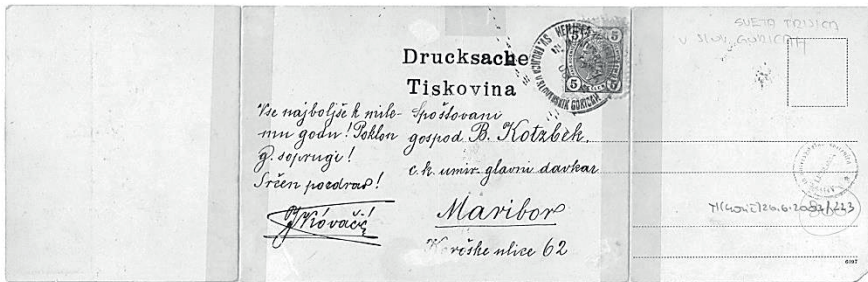 Drucksache
Tiskovina
Vse najboljše k mile-
mu godu! Poklon
g. soprugi!
Srčen pozdrav!
Kovačič
Spoštovani
gospod B. Kotzbek,
c. k. umir. glavni davkar
Maribor
Koroške ulice 62
5 5
5 5
SV. TROJICA V SLOVENSKIH GORICAH
SVETA TROJICA
V SLOV. GORICAH
6197